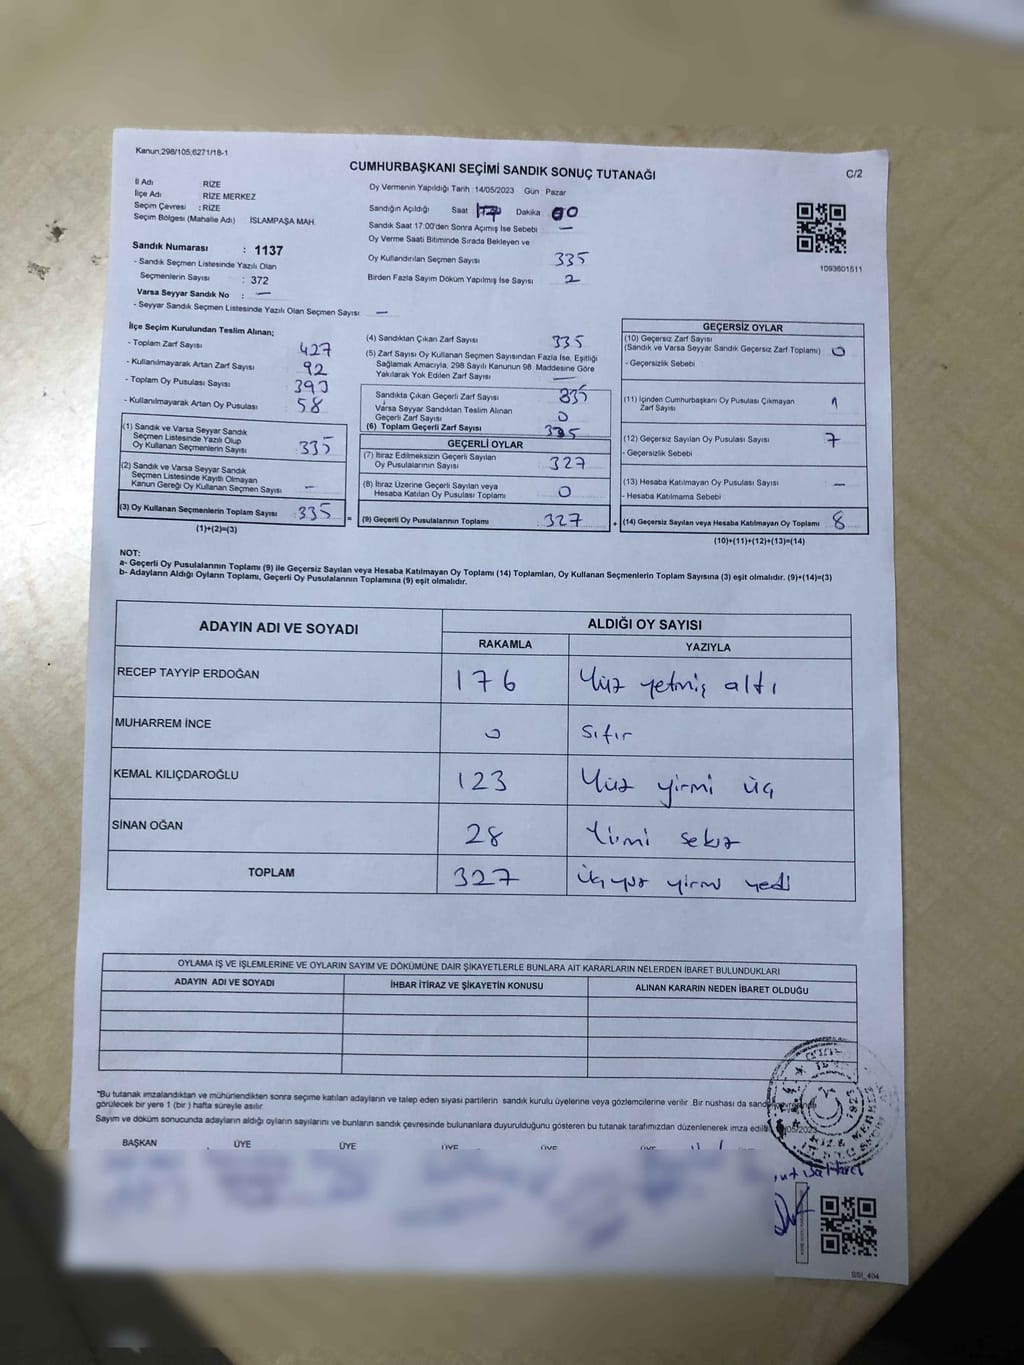 Kanun.298/105,6271/18-1
CUMHURBAŞKANI SEÇİMİ SANDIK SONUÇ TUTANAĞI
C/2
İl Adı : RİZE
İlçe Adı RİZE MERKEZ
Seçim Çevresi : RİZE
Seçim Bölgesi (Mahalle Adı) İSLAMPAŞA MAH.
Sandık Numarası : 1137
- Sandık Seçmen Listesinde Yazılı Olan
Seçmenlerin Sayısı : 372
Varsa Seyyar Sandık No : —
- Seyyar Sandık Seçmen Listesinde Yazılı Olan Seçmen Sayısı : —
Oy Vermenin Yapıldığı Tarih : 14/05/2023 Gün Pazar
Sandığın Açıldığı Saat 17 Dakika 00
Sandık Saat 17:00'den Sonra Açımış İse Sebebi —
Oy Verme Saati Bitiminde Sırada Bekleyen ve
Oy Kullandırılan Seçmen Sayısı 335
Birden Fazla Sayım Döküm Yapılmış İse Sayısı 2
1093601511
İlçe Seçim Kurulundan Teslim Alınan;
- Toplam Zarf Sayısı 427
- Kullanılmayarak Artan Zarf Sayısı 92
- Toplam Oy Pusulası Sayısı 393
- Kullanılmayarak Artan Oy Pusulası 58
(1) Sandık ve Varsa Seyyar Sandık
Seçmen Listesinde Yazılı Olup
Oy Kullanan Seçmenlerin Sayısı 335
(2) Sandık ve Varsa Seyyar Sandık
Seçmen Listesinde Kayıtlı Olmayan
Kanun Gereği Oy Kullanan Seçmen Sayısı —
(3) Oy Kullanan Seçmenlerin Toplam Sayısı 335
(1)+(2)=(3)
(4) Sandıktan Çıkan Zarf Sayısı 335
(5) Zarf Sayısı Oy Kullanan Seçmen Sayısından Fazla İse, Eşitliği
Sağlamak Amacıyla, 298 Sayılı Kanunun 98. Maddesine Göre
Yakılarak Yok Edilen Zarf Sayısı —
Sandıkta Çıkan Geçerli Zarf Sayısı 335
Varsa Seyyar Sandıktan Teslim Alınan
Geçerli Zarf Sayısı 0
(6) Toplam Geçerli Zarf Sayısı 335
GEÇERLİ OYLAR
(7) İtiraz Edilmeksizin Geçerli Sayılan
Oy Pusulalarının Sayısı 327
(8) İtiraz Üzerine Geçerli Sayılan veya
Hesaba Katılan Oy Pusulası Toplamı 0
= (9) Geçerli Oy Pusulalarının Toplamı 327
GEÇERSİZ OYLAR
(10) Geçersiz Zarf Sayısı
(Sandık ve Varsa Seyyar Sandık Geçersiz Zarf Toplamı) 0
- Geçersizlik Sebebi
(11) İçinden Cumhurbaşkanı Oy Pusulası Çıkmayan
Zarf Sayısı 1
(12) Geçersiz Sayılan Oy Pusulası Sayısı 7
- Geçersizlik Sebebi
(13) Hesaba Katılmayan Oy Pusulası Sayısı —
- Hesaba Katılmama Sebebi
+ (14) Geçersiz Sayılan veya Hesaba Katılmayan Oy Toplamı 8
(10)+(11)+(12)+(13)=(14)
NOT:
a- Geçerli Oy Pusulalarının Toplamı (9) ile Geçersiz Sayılan veya Hesaba Katılmayan Oy Toplamı (14) Toplamları, Oy Kullanan Seçmenlerin Toplam Sayısına (3) eşit olmalıdır. (9)+(14)=(3)
b- Adayların Aldığı Oyların Toplamı, Geçerli Oy Pusulalarının Toplamına (9) eşit olmalıdır.
ADAYIN ADI VE SOYADI ALDIĞI OY SAYISI
RAKAMLA YAZIYLA
RECEP TAYYİP ERDOĞAN 176 Yüz yetmiş altı
MUHARREM İNCE 0 Sıfır
KEMAL KILIÇDAROĞLU 123 Yüz yirmi üç
SİNAN OĞAN 28 Yirmi sekiz
TOPLAM 327 Üçyüz yirmi yedi
OYLAMA İŞ VE İŞLEMLERİNE VE OYLARIN SAYIM VE DÖKÜMÜNE DAİR ŞİKAYETLERLE BUNLARA AİT KARARLARIN NELERDEN İBARET BULUNDUKLARI
ADAYIN ADI VE SOYADI İHBAR İTİRAZ VE ŞİKAYETİN KONUSU ALINAN KARARIN NEDEN İBARET OLDUĞU
*Bu tutanak imzalandıktan ve mühürlendikten sonra seçime katılan adayların ve talep eden siyasi partilerin sandık kurulu üyelerine veya gözlemcilerine verilir. Bir nüshası da
görülecek bir yere 1 (bir) hafta süreyle asılır.
Sayım ve döküm sonucunda adayların aldığı oyların sayılarını ve bunların sandık çevresinde bulunanlara duyurulduğunu gösteren bu tutanak tarafımızdan düzenlenerek imza
BAŞKAN ÜYE ÜYE ÜYE ÜYE ÜYE